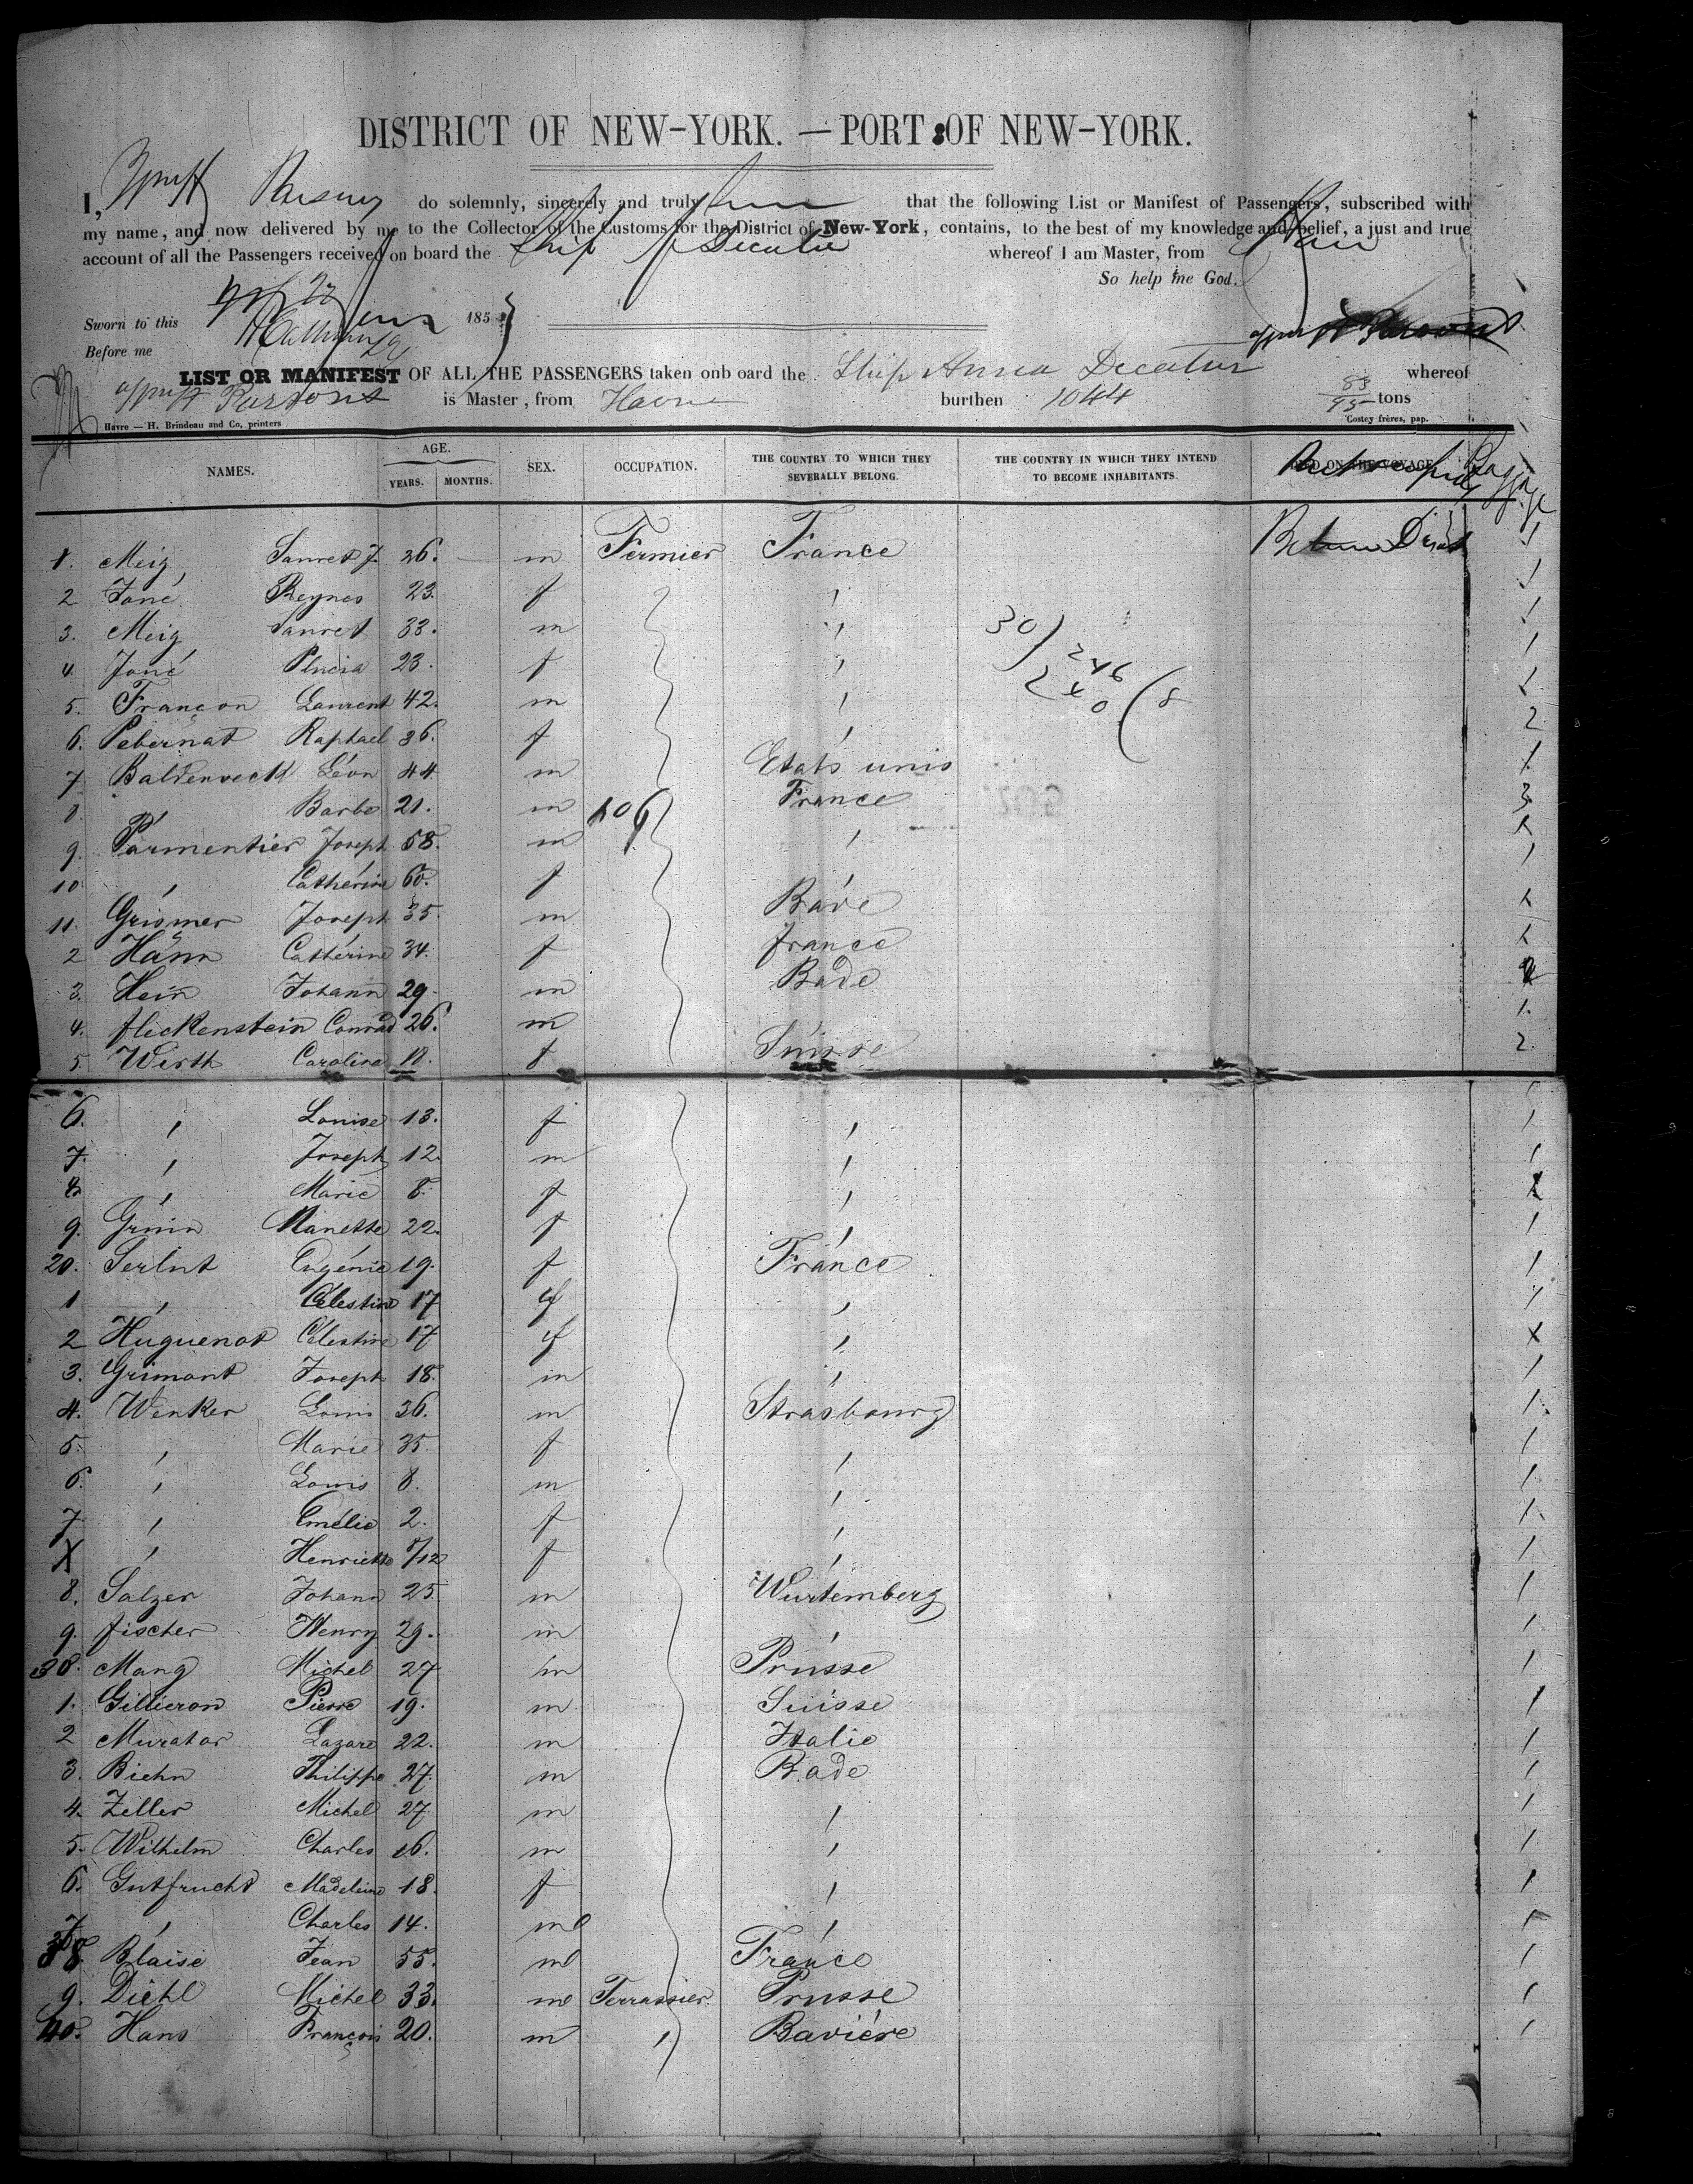 DISTRICT OF NEW-YORK. — PORT OF NEW-YORK.
I, do solemnly, sincerely and truly that the following List or Manifest of Passengers, subscribed with
my name, and now delivered by me to the Collector of the Customs for the District of New-York, contains, to the best of my knowledge and belief, a just and true
account of all the Passengers received on board the Ship A Decatur whereof I am Master, from
So help me God.
Sworn to this 185
Before me
LIST OR MANIFEST OF ALL THE PASSENGERS taken onb oard the Ship Anna Decatur whereof
Parsons is Master, from Havre burthen 1044 83/95 tons
Havre — H. Brindeau and Co, printers Costey frères, pap.
NAMES. AGE. YEARS. MONTHS. SEX. OCCUPATION. THE COUNTRY TO WHICH THEY SEVERALLY BELONG. THE COUNTRY IN WHICH THEY INTEND TO BECOME INHABITANTS. DIED ON THE VOYAGE. Baggage
1. Meig 26. m Fermier France 1
2 Jané Reynes 23. f " 1
3. Meig 33. m " 1
4. Jané 23. f " 1
5. Françon Laurent 42. m " 1
6. Pebernat Raphael 36. f " 2
7 Baldenweck Léon 44 m Etats unis 1
8. " Barbe 21. m 106 France 3
9. Parmentier Joseph 58. m " 1
10 " Cathérine 60. f " 1
11. Grismer Joseph 35. m Bade 1
2 Hann Cathérine 34. f france 1
3. Hein Johann 29. m Bade 2
4. flickenstein Conrad 26. m 1.
5 Wirth Caroline f Suisse 2
6. " Louise 13. f " 1
7. " Joseph 12. m " 1
8 " Marie 8. f " 1
9. Grnin Nanette 22. f " 1
20. Serlut Eugénie 19. f France 1
1 " Célestine 17 f " 1
2 Huguenot Célestine 17 f " X
3. Grimont Joseph 18. m " 1
4. Wenker Louis 36. m Strasbourg 1.
5. " Marie 35. f " 1
6. " Louis 8. m " 1
7 " Emélie 2. f " 1.
X " Henriette /12 f " 1
8. Salzer Johann 25. m Wurtemberg 1
9. fischer Henry 29. m " 1
30. Mang Michel 27 m Prusse 1
1. Gillieron Pierre 19. m Suisse 1
2 Murator Lazare 22. m Italie 1
3. Biehn Philippe 27. m Bade 1
4. Zeller Michel 27. m " 1
5. Wilhelm Charles 16. m " 1
6. Gutfrucht Madeleine 18. f " 1
7 " Charles 14. m " 1
38 Blaise Jean 55. m France 1
9. Diehl Michel 33. m Terrassier Prusse 1
40. Hans François 20. m " Bavière 1